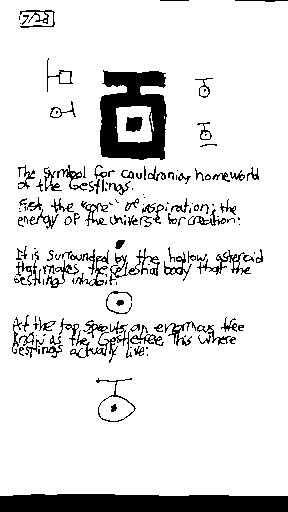 7/28
The symbol for cauldronia, homeworld
of the Gestlings.
First, the "core" of inspiration; the
energy of the universe for creation:
It is surrounded by the hollow asteroid
that makes the celestial body that the
Gestlings inhabit:
At the top sprouts an enormous tree
known as the Gestletree. This where
Gestlings actually live: